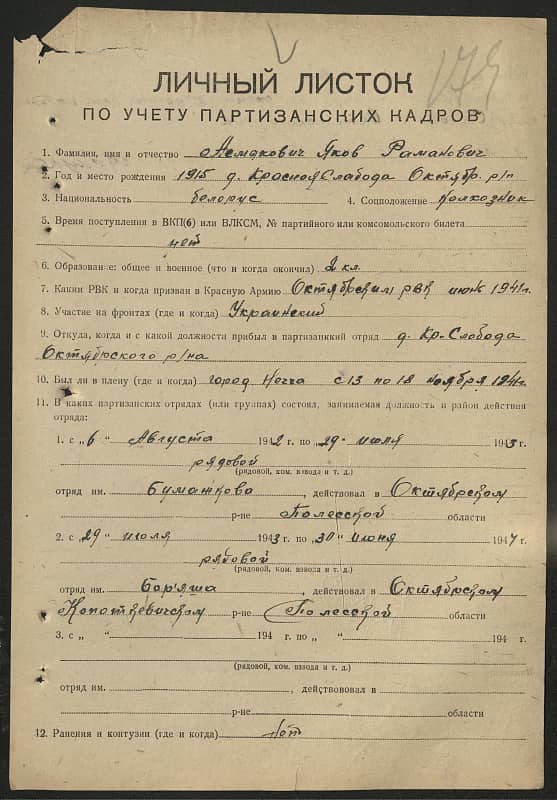 179
ЛИЧНЫЙ ЛИСТОК
ПО УЧЕТУ ПАРТИЗАНСКИХ КАДРОВ
1. Фамилия, имя и отчество Асмакович Яков Раманович
2. Год и место рождения 1915 д. Красная Слобода Октябр. р/н
3. Национальность белорус 4. Соцположение колхозник
5. Время поступления в ВКП(б) или ВЛКСМ, № партийного или комсомольского билета
нет
6. Образование: общее и военное (что и когда окончил) 2 кл.
7. Каким РВК и когда призван в Красную Армию Октябрским РВК июнь 1941г.
8. Участие на фронтах (где и когда) Украинский
9. Откуда, когда и с какой должности прибыл в партизанский отряд д. Кр-Слобода
Октябрского р/на
10. Был ли в плену (где и когда) город с 13 по 18 ноября 1941г.
11. В каких партизанских отрядах (или группах) состоял, занимаемая должность и район действия
отряда:
1. с „6“ Августа 1942 г. по „29“ июля 1943 г.
рядовой
(рядовой, ком. взвода и т. д.)
отряд им. Бумажкова, действовал в Октябрском
р-не Полесской области
2. с „29“ июля 1943 г. по „30“ июня 1944 г.
рядовой
(рядовой, ком. взвода и т. д.)
отряд им., действовал в Октябрском
Копаткевичском р-не Полесской области
3. с „ “ 194 г. по „ “ 194 г.
(рядовой, ком. взвода и т. д.)
отряд им., действововал в
р-не области
12. Ранения и контузии (где и когда) нет